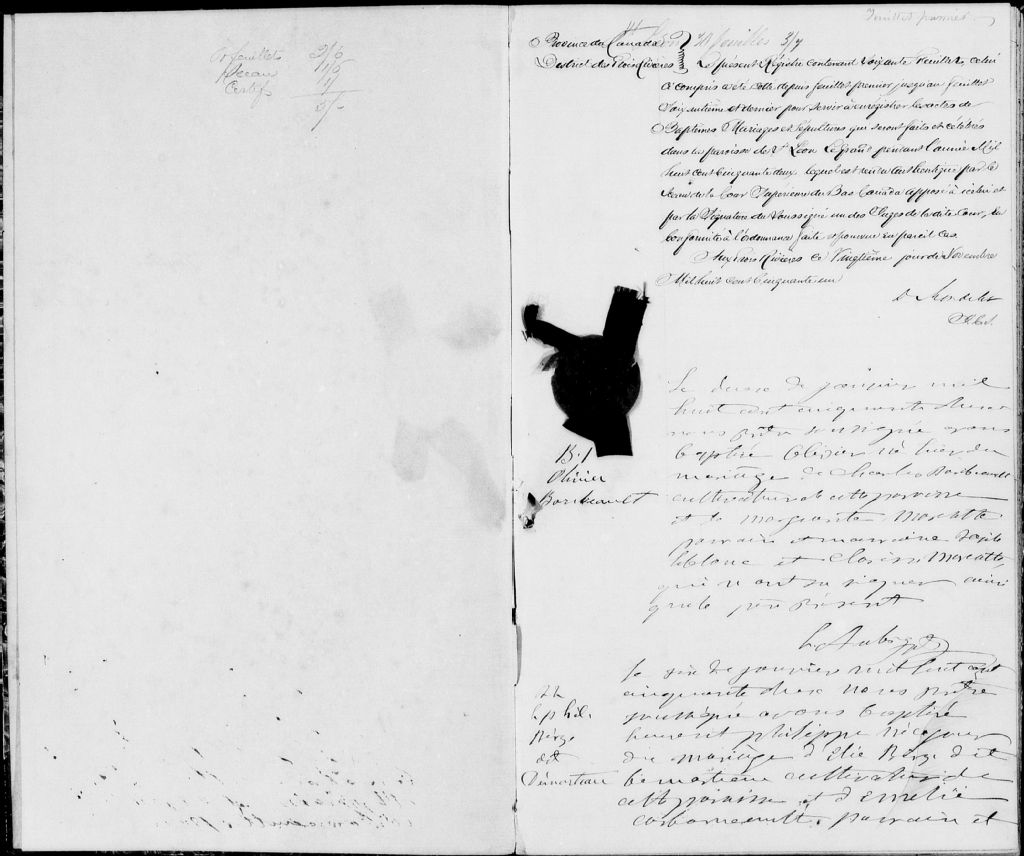 feuillets 2/6
Sceau 1/6
Certif 1/
5/-
Feuillet premier
Province du Canada
District des Trois Rivières
Le présent Régistre contenant Soixante Feuillets, celui
ci compris a été cotté depuis feuillet premier jusqu'au feuillet
Soixantième et dernier pour servir à enrégistrer les actes de
Baptêmes Mariages et Sépultures qui seront faits et célébrés
dans la paroisse de St Léon Legrand pendant l'année Mil
huit cent Cinquante deux, lequel est rendu authentique par le
Sceau de la Cour Supérieure du Bas Canada apposé à icelui et
par la Signature du Soussigné un des Juges de la dite Cour, en
Conformité à l'ordonnance faite et pourvue en pareil Cas.
Aux Trois Rivières ce Vingtième jour de Novembre
Mil huit cent Cinquante un
D Mondelet
B.1
Olivier
Baribeault
Le deuse de janvier mil
huit cent cinquante deux
nous prêtre soussigné avons
baptisé Olivier né hier du
mariage de Charles Baribeault
cultivateur de cette paroisse
et de marguerite Marcotte
parrain et marraine
leblanc et Marcotte
qui n'ont su signer ainsi
que le père présent
Le six de janvier mil huit cent
cinquante deux nous prêtre
soussigné avons baptisé
philippe né ce jour
du mariage d'Elie Berge dit
cultivateur de
cette paroisse et d'Emelie
Carbonneault. parrain et